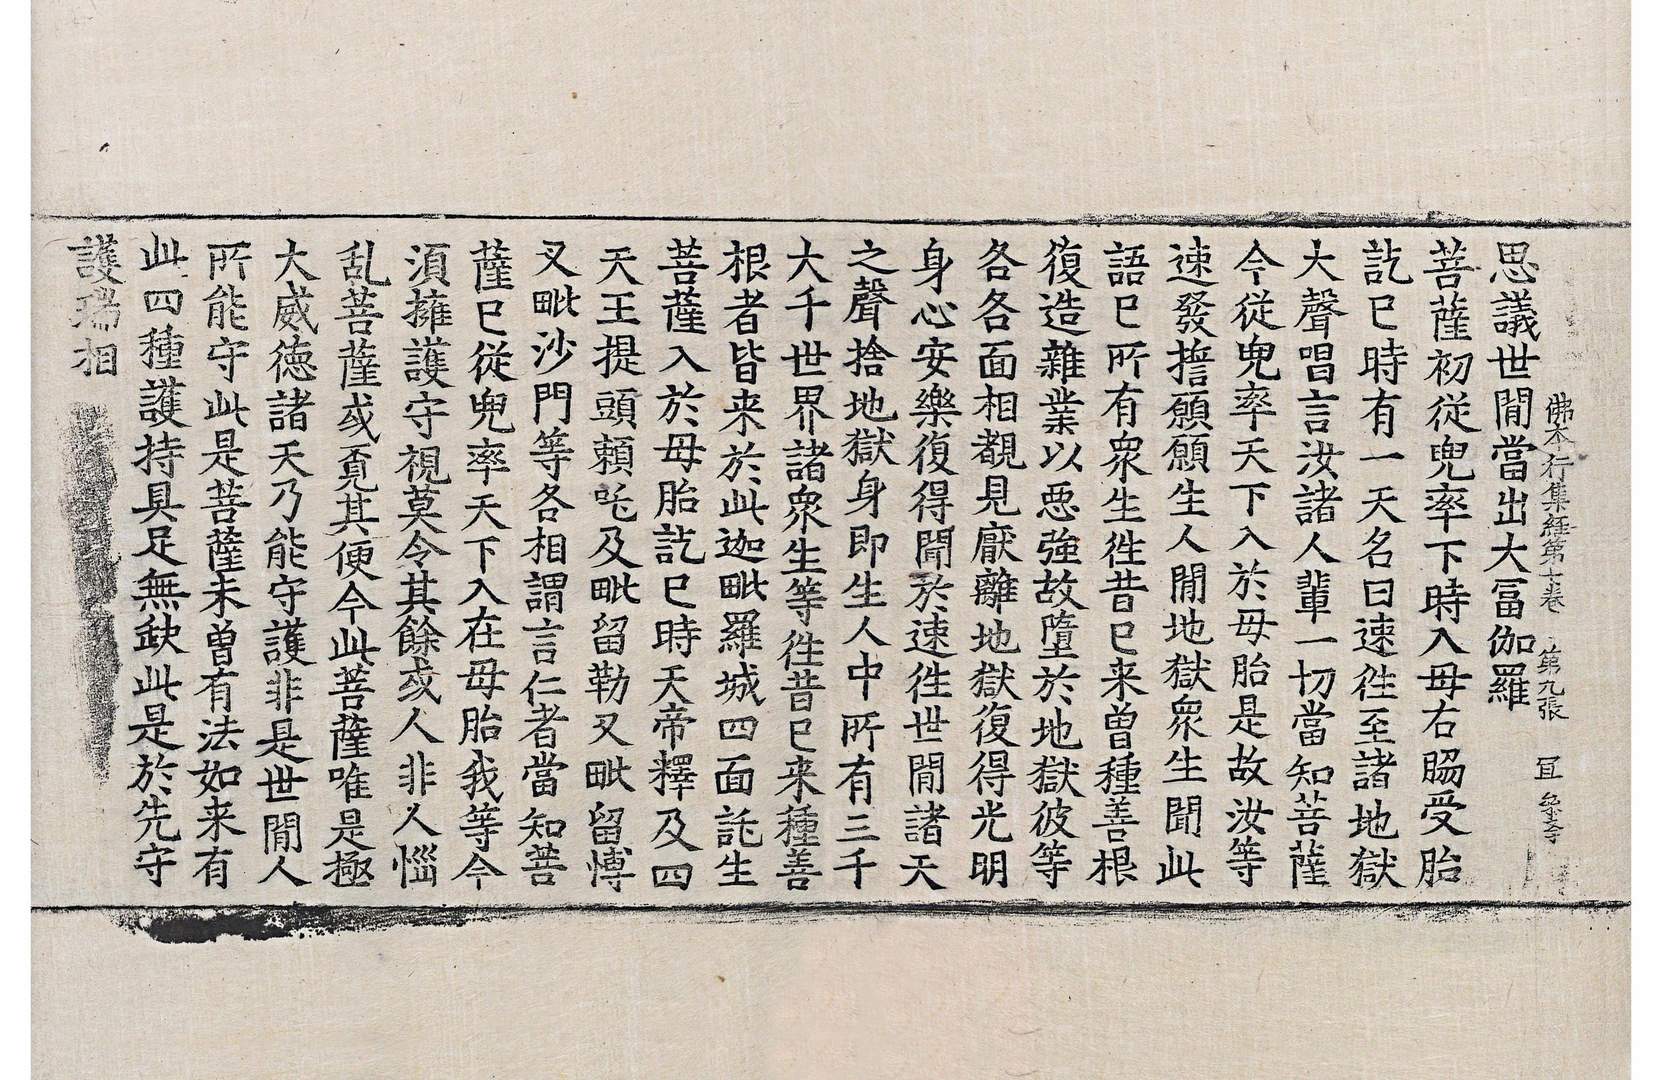 佛本行集經第七卷 第九張 冝
思議世閒當出大冨伽羅
菩薩初從兜率下時入母右脇受胎
訖已時有一天名曰速往至諸地獄
大聲唱言汝諸人輩一切當知菩薩
今從兜率天下入於母胎是故汝等
速發擔願願生人閒地獄衆生聞此
語已所有衆生往昔已来曾種善根
復造雜業以惡強故墮於地獄彼等
各各面相覩見厭離地獄復得光明
身心安樂復得聞於速往世閒諸天
之聲捨地獄身即生人中所有三千
大千世界諸衆生等往昔已来種善
根者皆来於此迦毗羅城四面託生
菩薩入於母胎訖已時天帝釋及四
天王提頭頼吒及毗留勒叉毗留愽
叉毗沙門等各相謂言仁者當知菩
薩已從兜率天下入在母胎我等今
湏擁護守視莫令其餘或人非人惱
乱菩薩或覔其便今此菩薩唯是極
大威徳諸天乃能守護非是世閒人
所能守此是菩薩未曽有法如来有
此四種護持具足無缺此是於先守
護瑞相